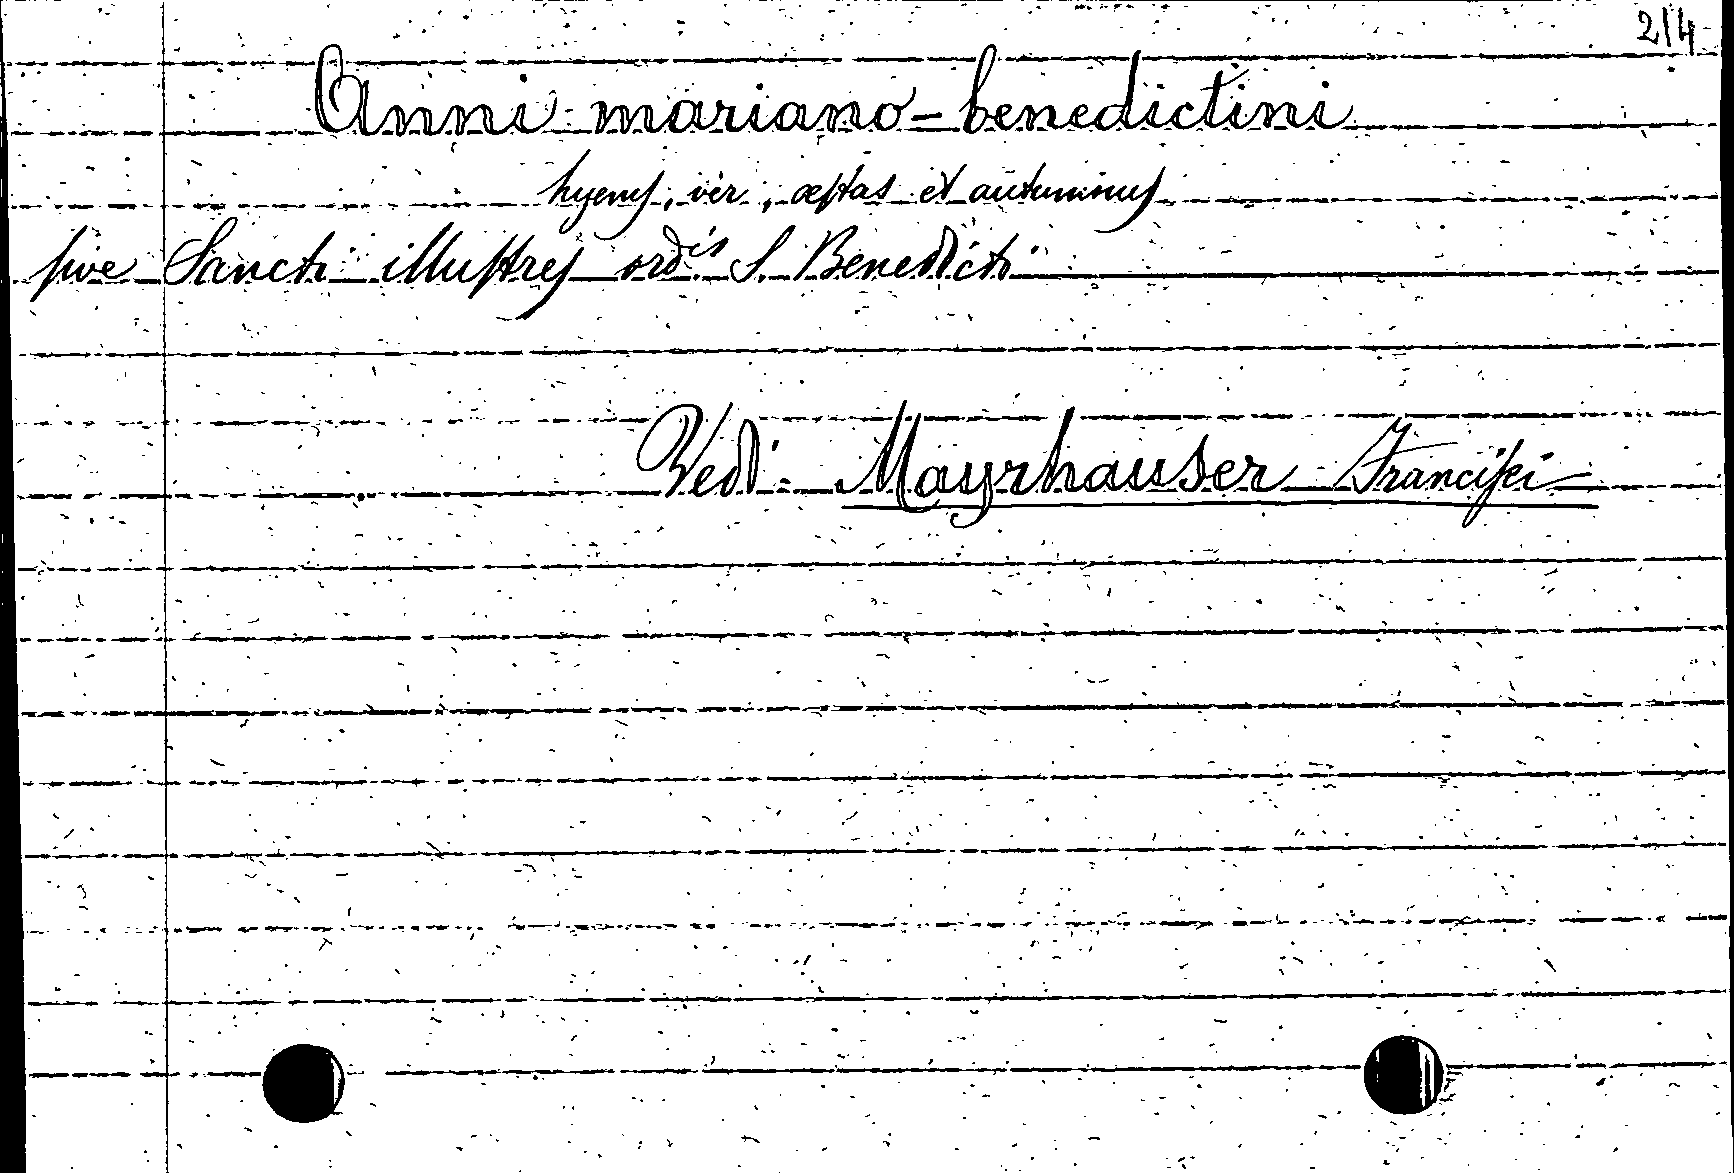 214
Anni mariano-benedictini
hyems, vèr, æstas et autumnus
sive Sancti illustres ordis S. Benedicti
Vedi: Mayrhauser Francisci